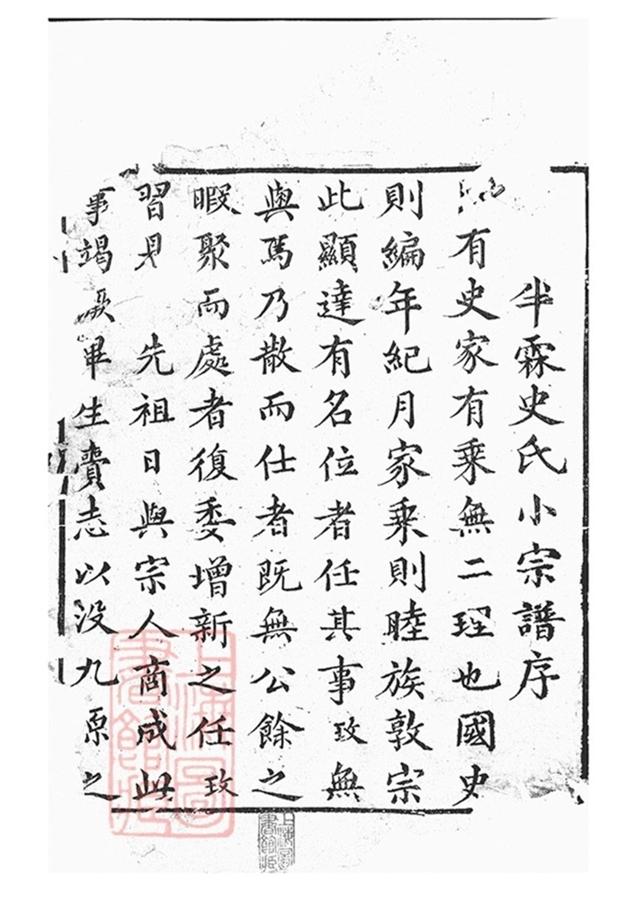 半霖史氏小宗譜序
有史家有乘無二理也國史
則編年紀月家乘則睦族敦宗
此顯達有名位者任其事玫無
與馬乃散而仕者既無公餘之
暇聚而處者復委增新之任玫
習見 先祖日與宗人商成此
事竭畢生賫志以沒九原之
上海圖書館藏
上海圖書館藏